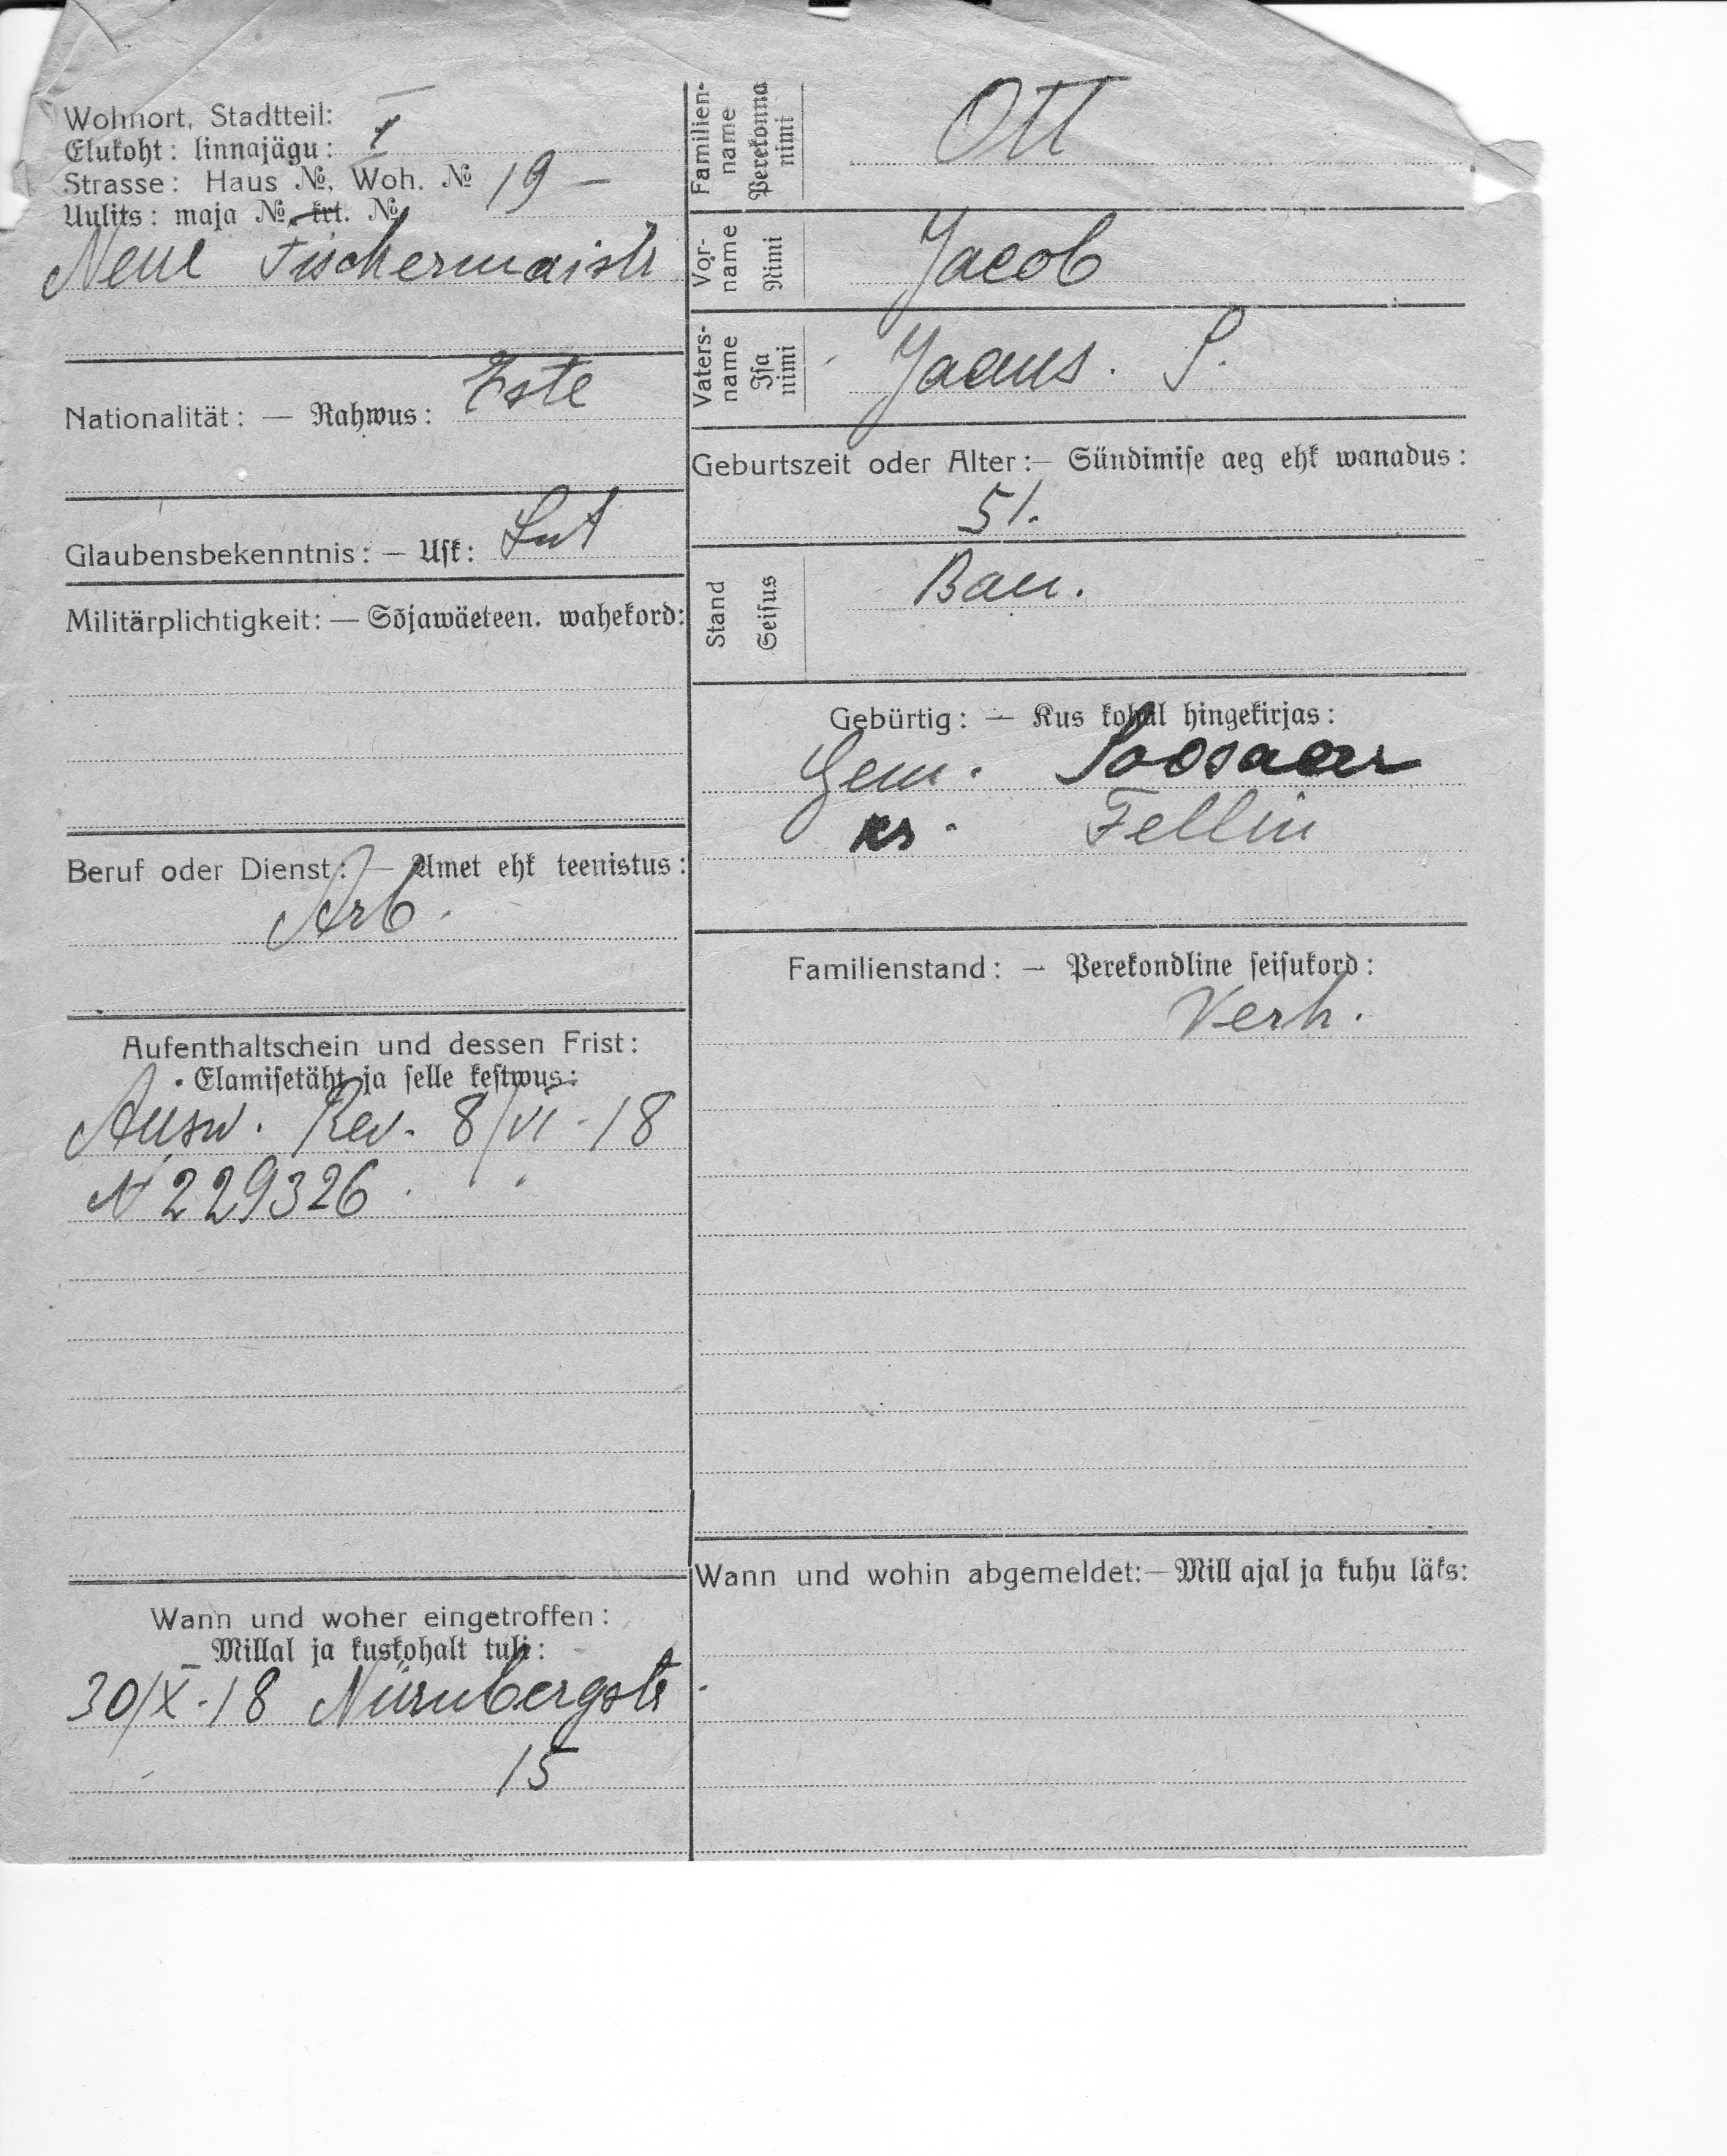 Wohnort, Stadtteil: I
Elukoht: linnajägu:
Strasse: Haus №, Woh. № 19 –
Uulits: maja № krt. №
Neue Fischermaistr
Nationalität: — Rahwus: Este
Glaubensbekenntnis: — Usk: Lut
Militärplichtigkeit: — Sõjawäeteen. wahekord:
Beruf oder Dienst: — Amet ehk teenistus:
Arb.
Aufenthaltschein und dessen Frist:
Elamisetäht ja selle kestwus:
Ausw. Rev. 8/VI-18
N 229326.
Wann und woher eingetroffen:
Millal ja kuskohalt tuli:
30/X-18 Nürnbergstr.
15
Familien-
name
Perekonna
nimi
Ott
Vor-
name
Nimi
Jacob
Vaters-
name
Isa
nimi
Jaans. S.
Geburtszeit oder Alter:— Sündimise aeg ehk wanadus:
51.
Stand
Seisus
Bau.
Gebürtig: — Kus kohal hingekirjas:
Gem. Soosaar
Kr. Fellin
Familienstand: — Perekondline seisukord:
Verh.
Wann und wohin abgemeldet:—Mill ajal ja kuhu läks: